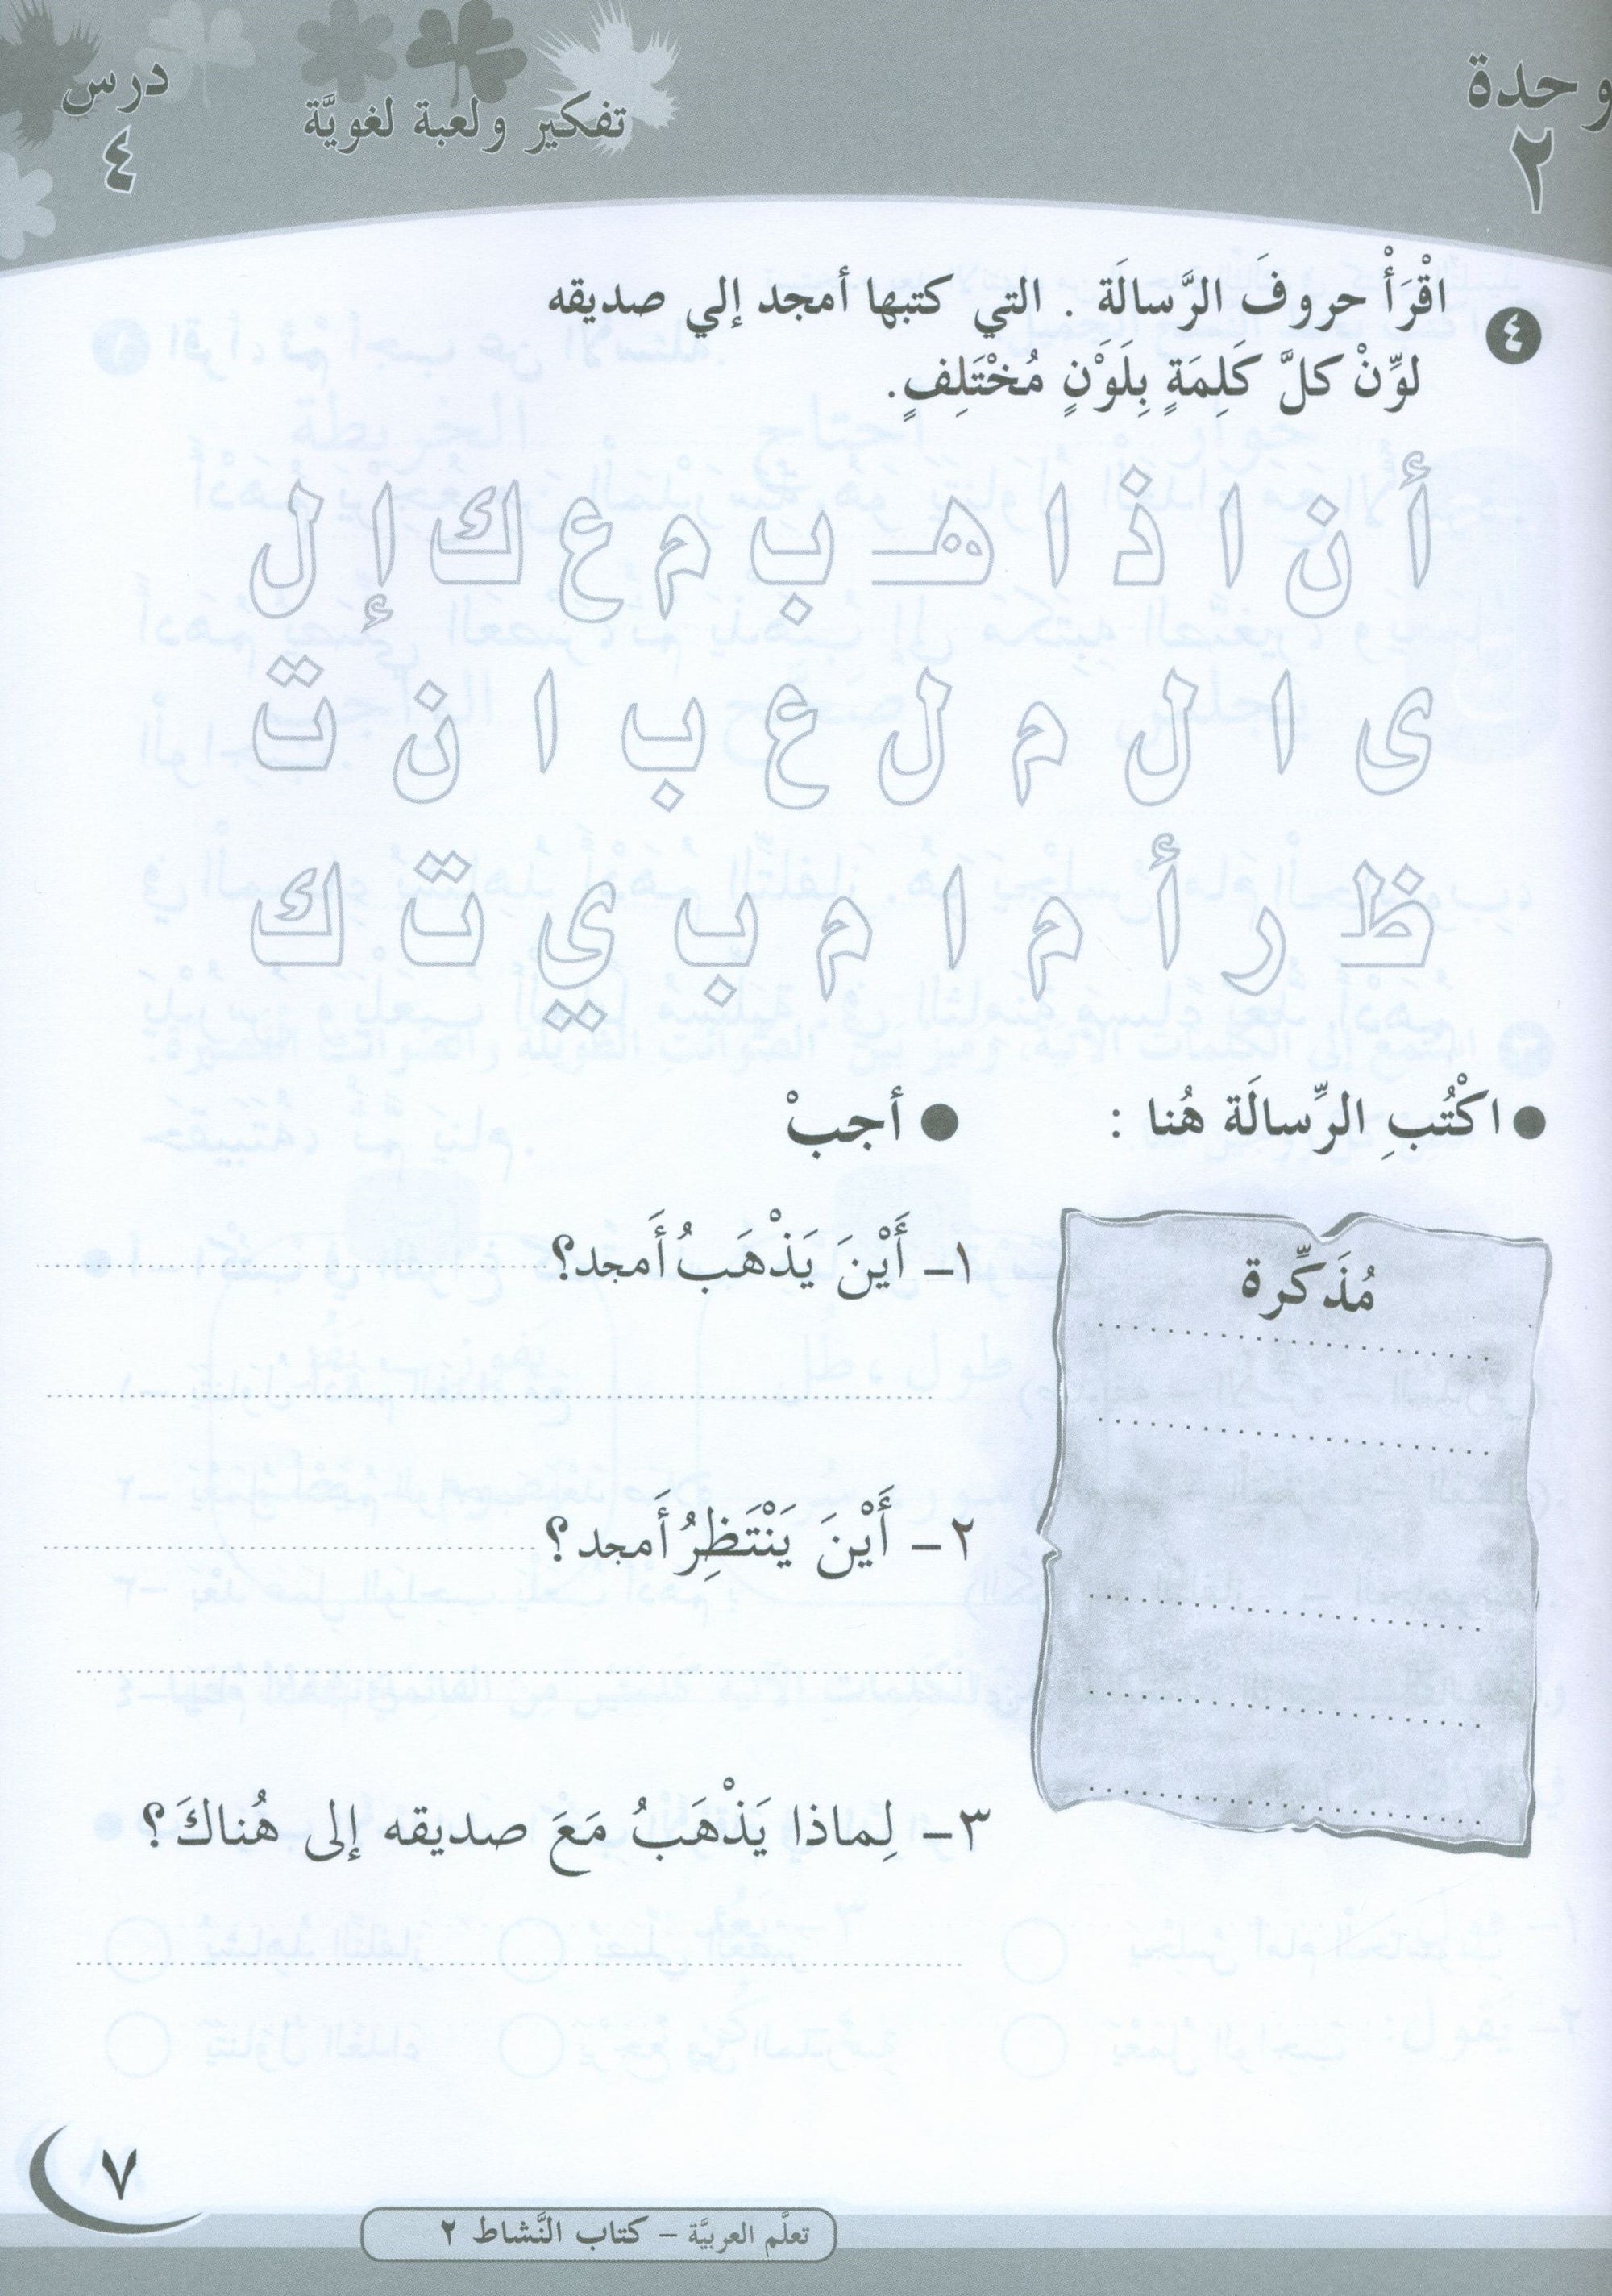 وحدة
٢
تفكير ولعبة لغويَّة
درس
٤
٤
اقْرَأْ حروفَ الرَّسالَة . التي كتبها أمجد إلي صديقه
لوِّنْ كلَّ كَلِمَةٍ بِلَوْنٍ مُخْتَلِفٍ.
أ ن ا ذ ا هـ ب م ع ك إ ل
ى ا ل م ل ع ب ا ن ت
ظ ر أ م ا م ب ي ت ك
● اكْتُبِ الرِّسالَة هُنا :
مُذَكِّرة
● أجبْ
١- أَيْنَ يَذْهَبُ أَمجد؟
٢- أَيْنَ يَنْتَظِرُ أَمجد؟
٣- لِماذا يَذْهَبُ مَعَ صديقه إلى هُناكَ؟
٧
تعلَّم العربيَّة - كتاب النَّشاط ٢